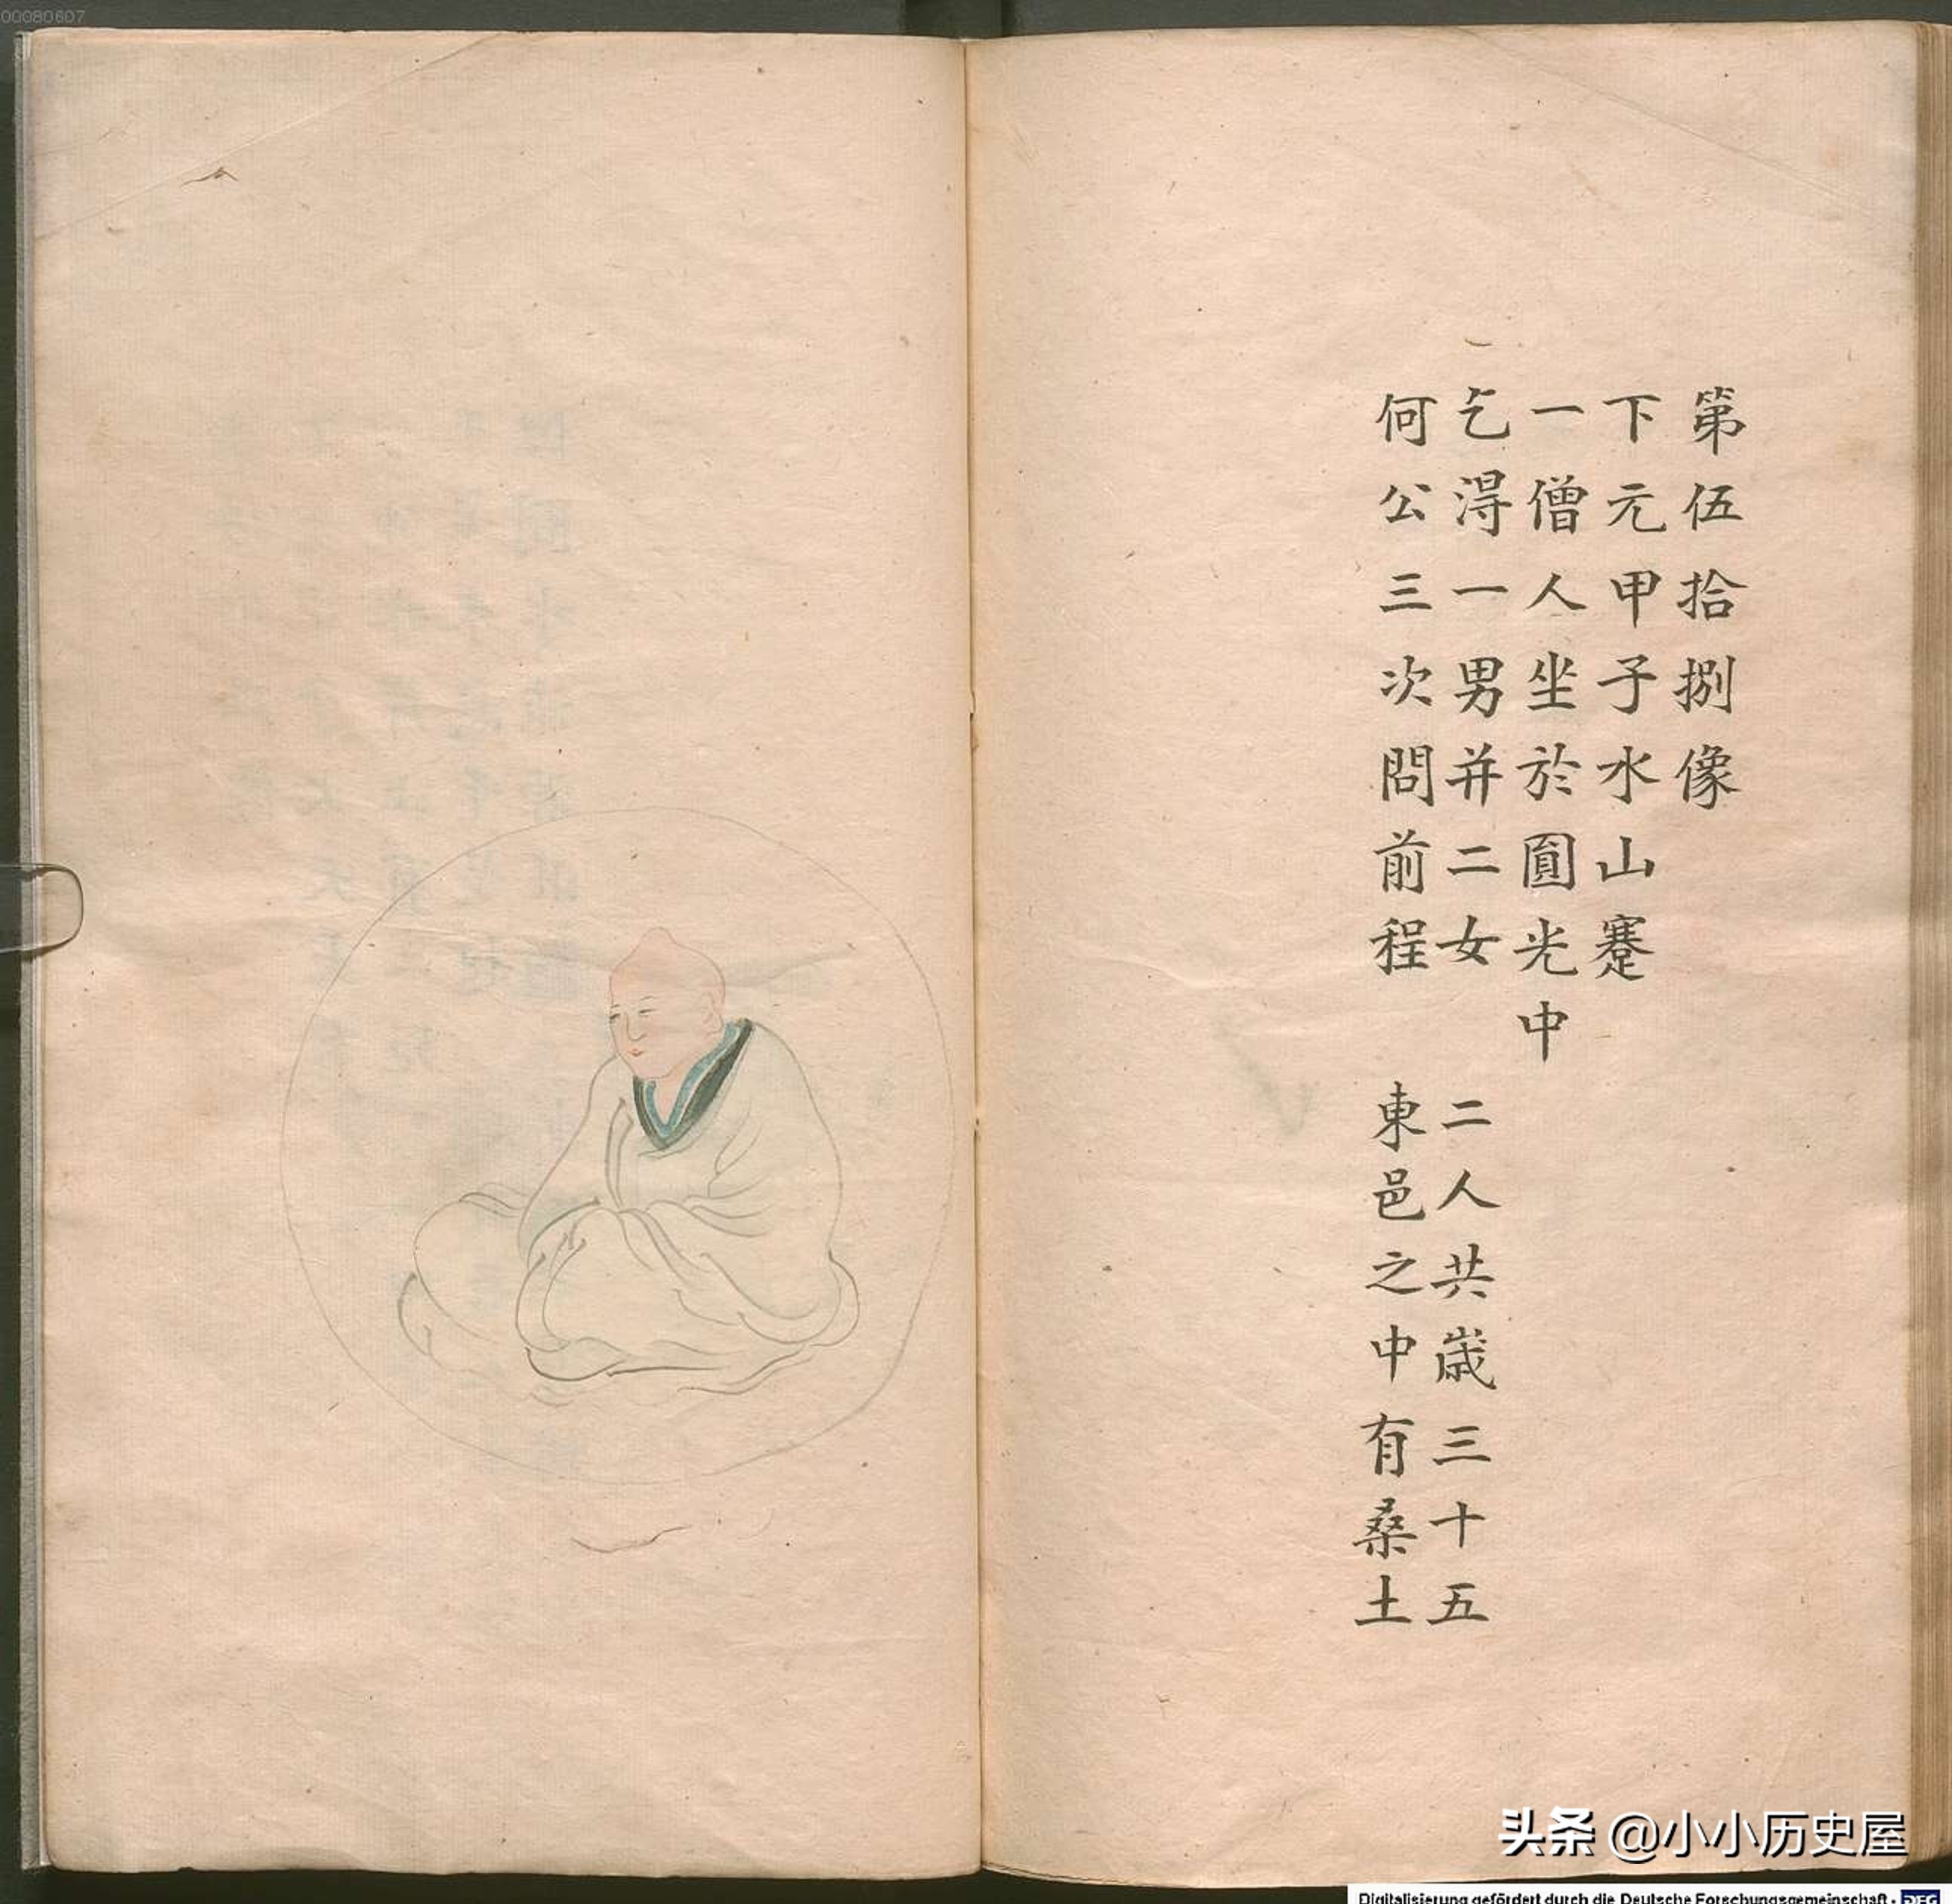 00080607
第伍拾捌像
下元甲子水山蹇
一僧人坐於圓光中
乞淂一男并二女 二人共歳三十五
何公三次問前程 東邑之中有桑土
头条 @小小历史屋
Digitalisierung gefördert durch die Deutsche Forschungsgemeinschaft · DFG